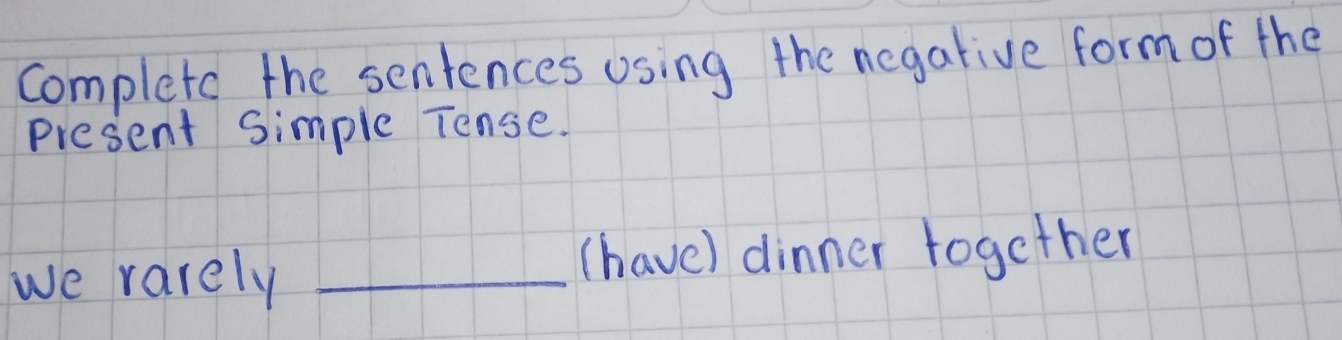 Complete the sentences using the negative form of the
Present Simple Tense.
We rarely __________ (have) dinner together